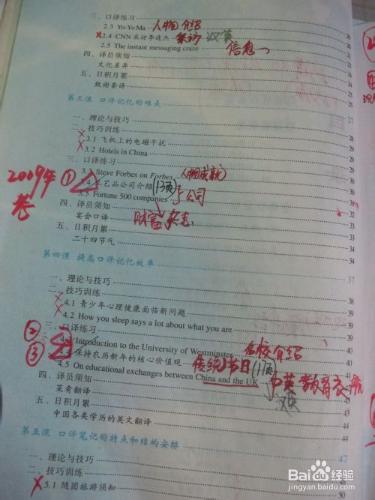 三、口译练习
2.3 Yo-Yo Ma 人物介绍
2.4 CNN
2.5 The instant messaging craze 信息
四、译员须知
文化差异
五、日积月累
致谢套语
第三课 口译记忆的难点
一、理论与技巧
二、技巧训练
3.1 飞机上的电磁干扰
3.2 Hotels in China
三、口译练习
Steve Forbes on Forbes
2009年 ① 艺品公司介绍 公司
卷 Fortune 500 companies
四、译员须知 财富杂志
宴会口译
五、日积月累
二十四节气
第四课 提高口译记忆效率
一、理论与技巧
二、技巧训练
4.1 青少年心理健康面临新问题
4.2 How you sleep says a lot about what you are
② 三、口译练习 名校介绍
③ Introduction to the University of Westminster
保持农历新年的核心价值观 传统节日
4.5 On educational exchanges between China and the UK 中英教育交流
四、译员须知
菜肴翻译
五、日积月累
中国各类学历的英文翻译
第五课 口译笔记的特点和结构安排
一、理论与技巧
二、技巧训练
5.1 随团旅游须知
Baidu经验